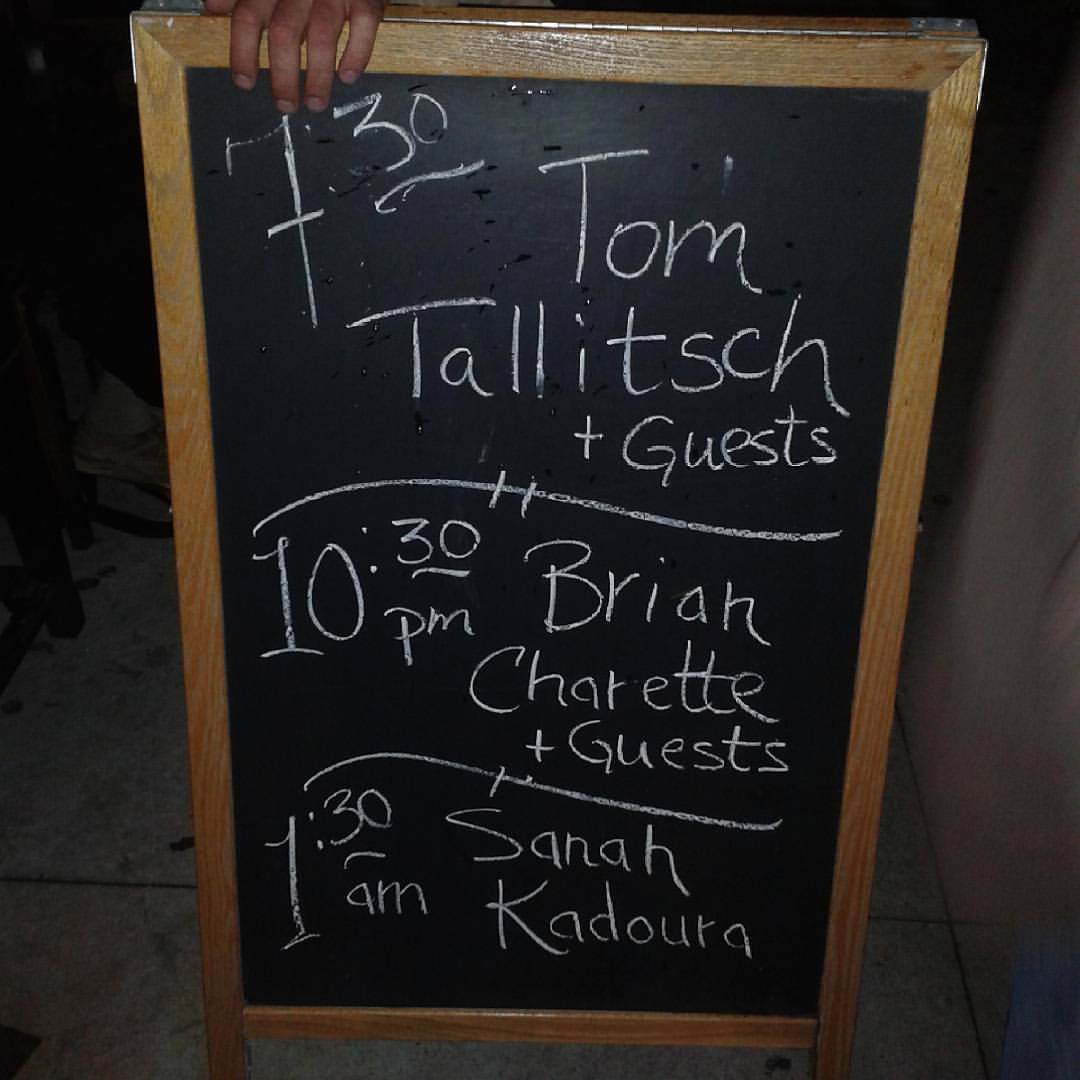 7:30 Tom
Tallitsch
+ Guests
10:30 pm Brian
Charette
+ Guests
1:30 am Sanah
Kadoura